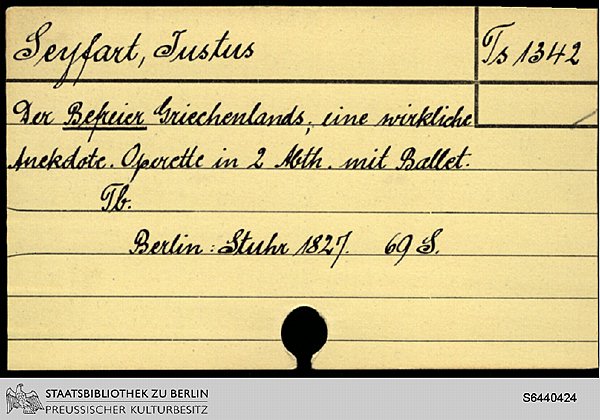 Seyfart, Justus
Ts 1342
Der Befreier Griechenlands; eine wirkliche
Anekdote. Operette in 2 Abth. mit Ballet.
Tb.
Berlin: Stuhr 1827. 69 S.
STAATSBIBLIOTHEK ZU BERLIN
PREUSSISCHER KULTURBESITZ
S6440424